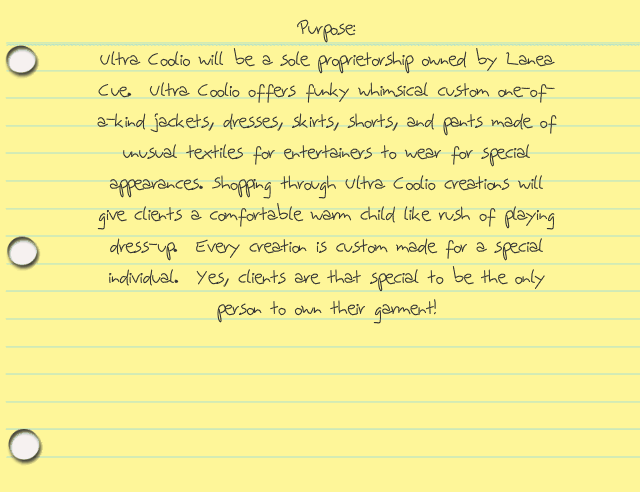 Purpose:
Ultra Coolio will be a sole proprietorship owned by Lanea
Cue. Ultra Coolio offers funky whimsical custom one-of-
a-kind jackets, dresses, skirts, shorts, and pants made of
unusual textiles for entertainers to wear for special
appearances. Shopping through Ultra Coolio creations will
give clients a comfortable warm child like rush of playing
dress-up. Every creation is custom made for a special
individual. Yes, clients are that special to be the only
person to own their garment!